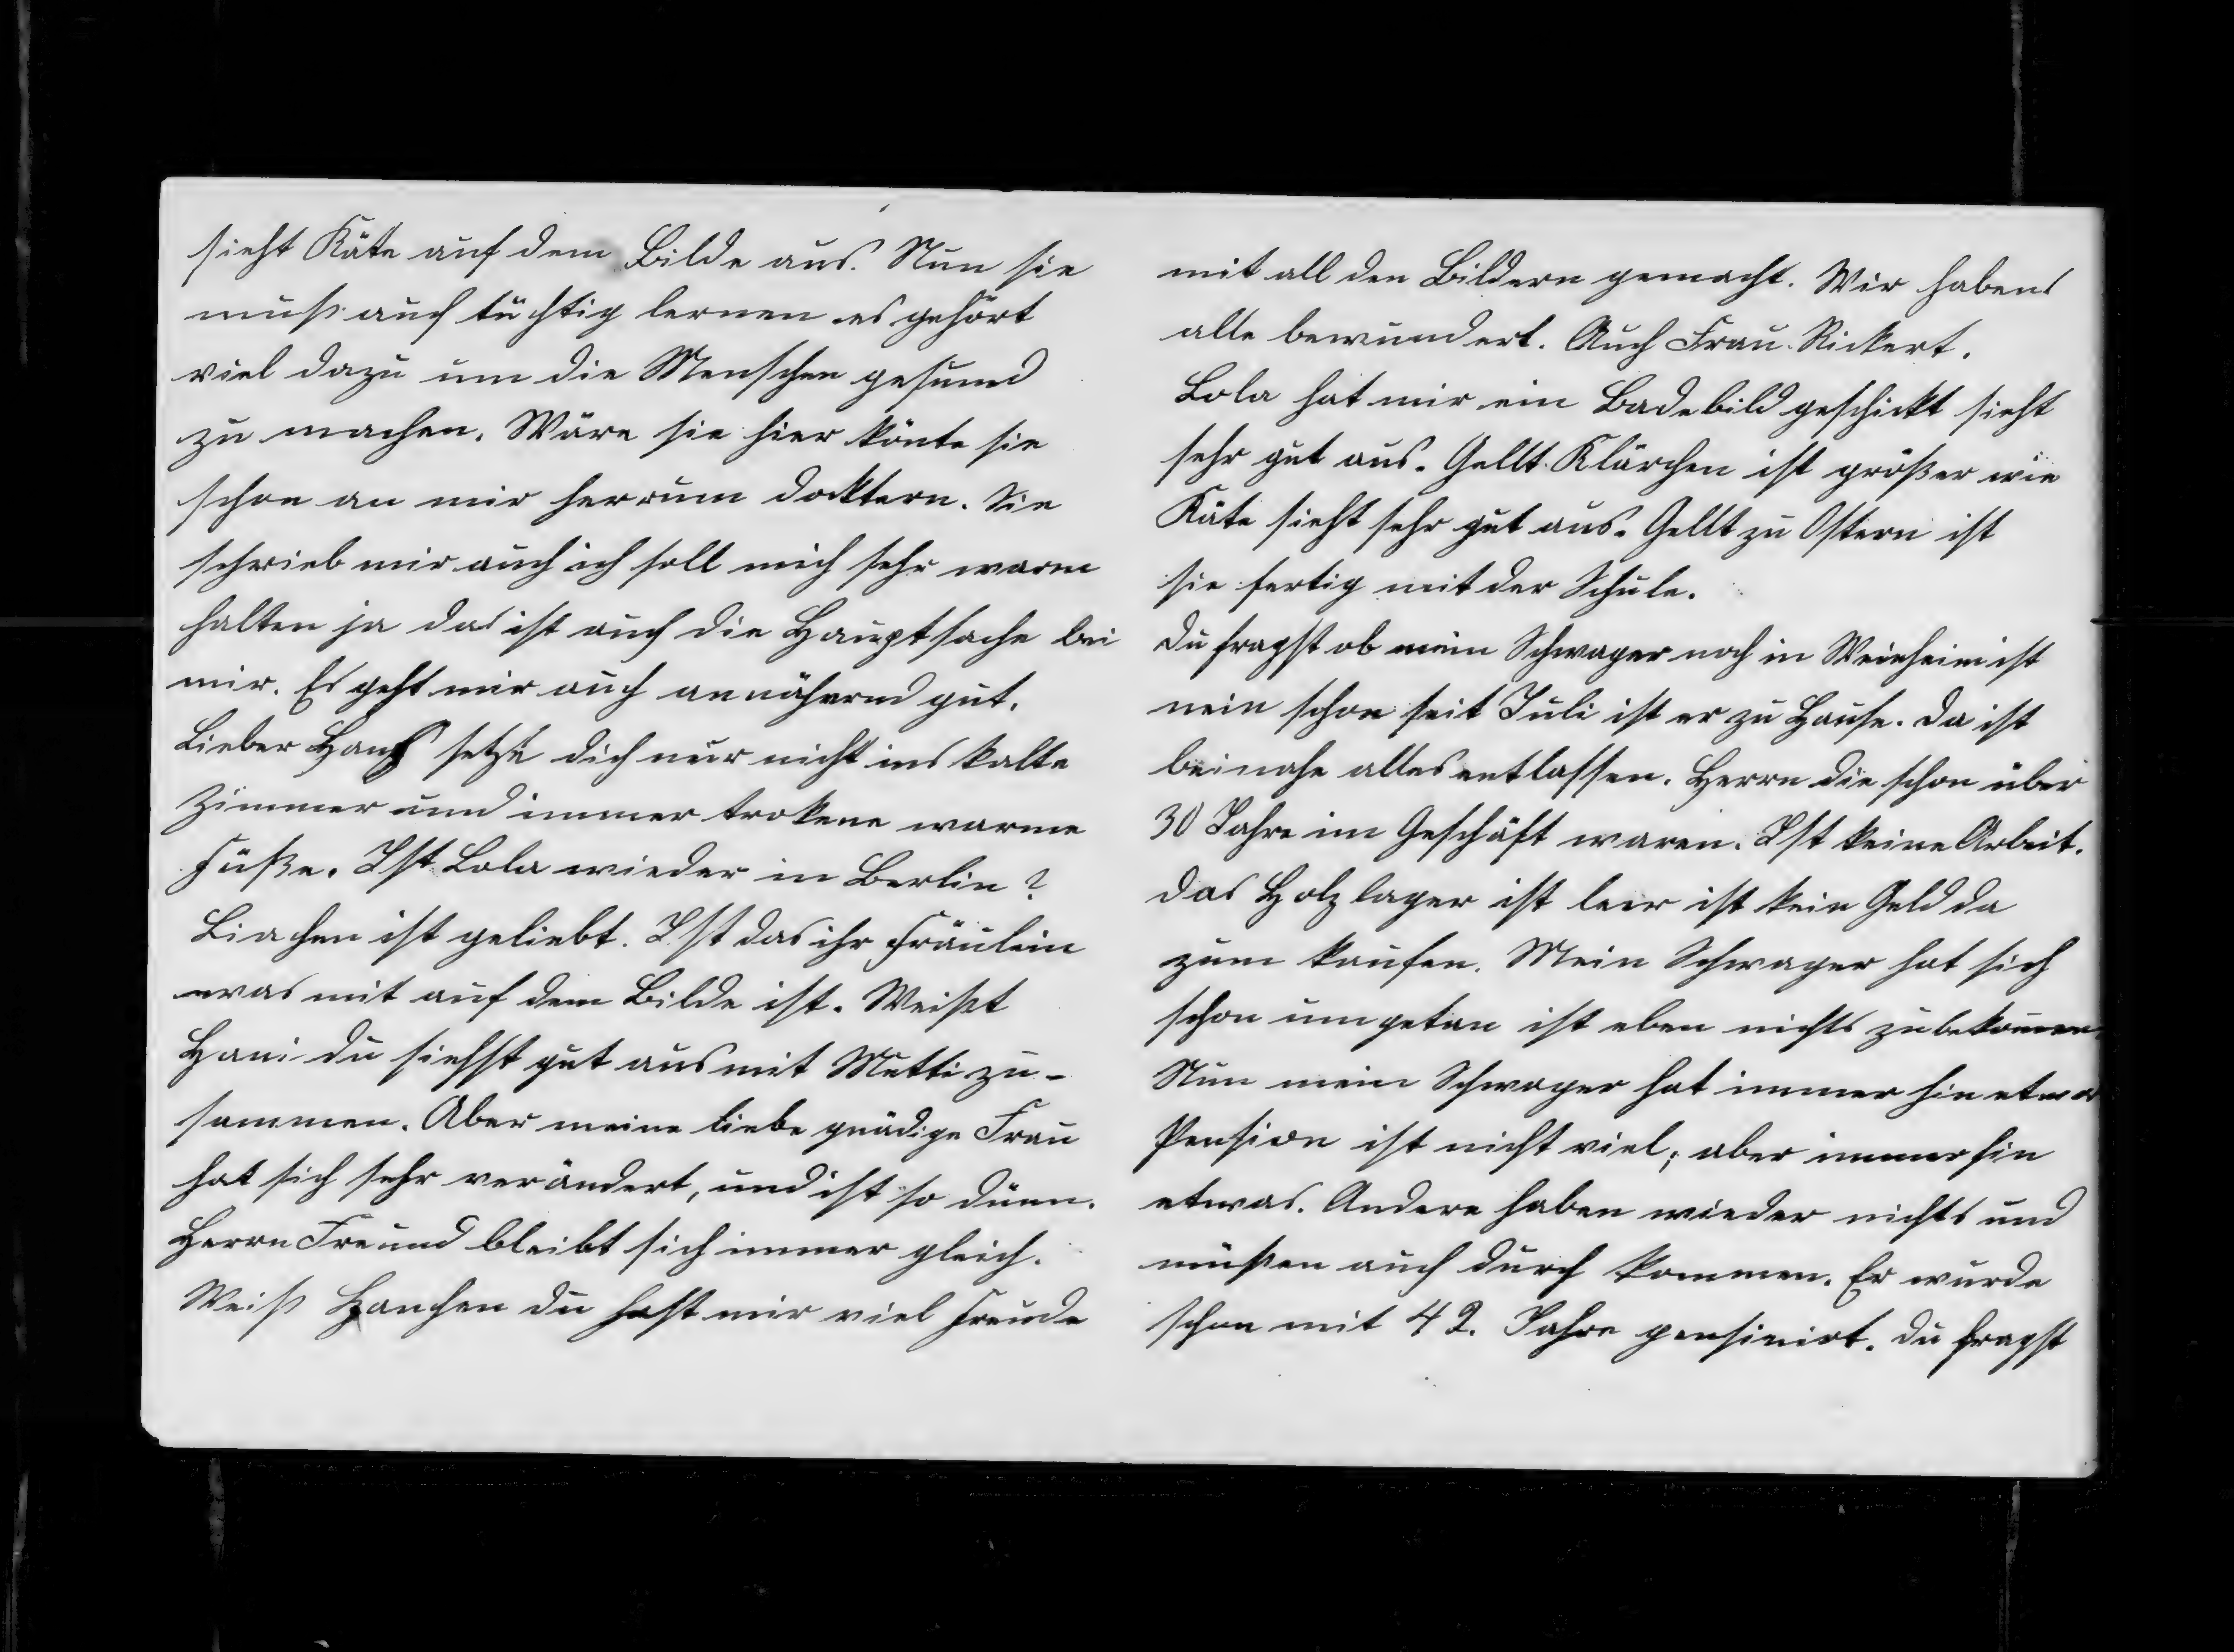 sieht Käte auf dem Bilde aus. Nun sie
muß auch tüchtig lernen es gehört
viel dazu um die Menschen gesund
zu machen. Wäre sie hier könte sie
schon an mir herrum docktern. Sie
schrieb mir auch ich soll mich sehr warm
halten ja das ist auch die Hauptsache bei
mir. Es geht mir auch annähernd gut.
Lieber Hans setze dich nur nicht ins kalte
Zimmer und immer trokene warme
Füße. Ist Lola wieder in Berlin?
Liachen ist geliebt. Ist das ihr Fräulein
was mit auf dem Bilde ist. Weißt
Hani du siehst gut aus mit Mutti zu-
sammen. Aber meine liebe gnädige Frau
hat sich sehr verändert, und ist so dünn.
Herrn Freund bleibt sich immer gleich.
Weiß Hanchen du hast mir viel Freude
mit all den Bildern gemacht. Wir habens
alle bewundert. Auch Frau Rickert.
Lola hat mir ein Badebild geschickt sieht
sehr gut aus. Gellt Klärchen ist größer wie
Käte sieht sehr gut aus. Gellt zu Ostern ist
sie fertig mit der Schule.
Du fragst ob mein Schwager noch in Weinheim ist
nein schon seit Juli ist er zu Hause. Da ist
beinahe alles entlassen. Herrn die schon über
30 Jahre im Geschäft waren. Ist keine Arbeit.
Das Holzlager ist leer ist kein Geld da
zum kaufen. Mein Schwager hat sich
schon umgetan ist eben nichts zubekommen.
Nun mein Schwager hat immer hin etwas
Pension ist nicht viel; aber immerhin
etwas. Andere haben wieder nichts und
müßen auch durch kommen. Er wurde
schon mit 42. Jahre pensinirt. Du fragst